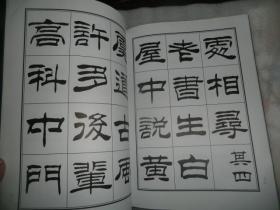 處相尋其四
老書生白
屋中說黃
虞道古風
許多後輩
高科中門